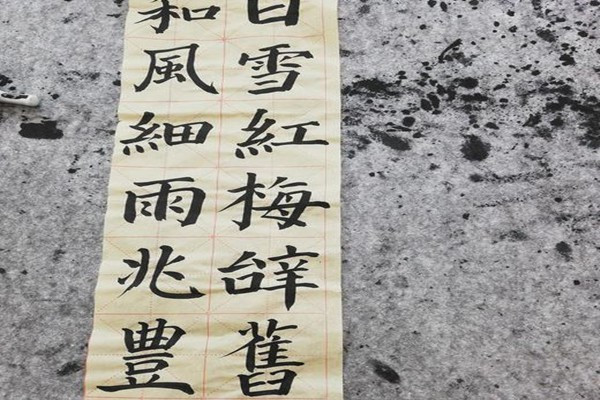 白雪紅梅辝舊
和風細雨兆豊